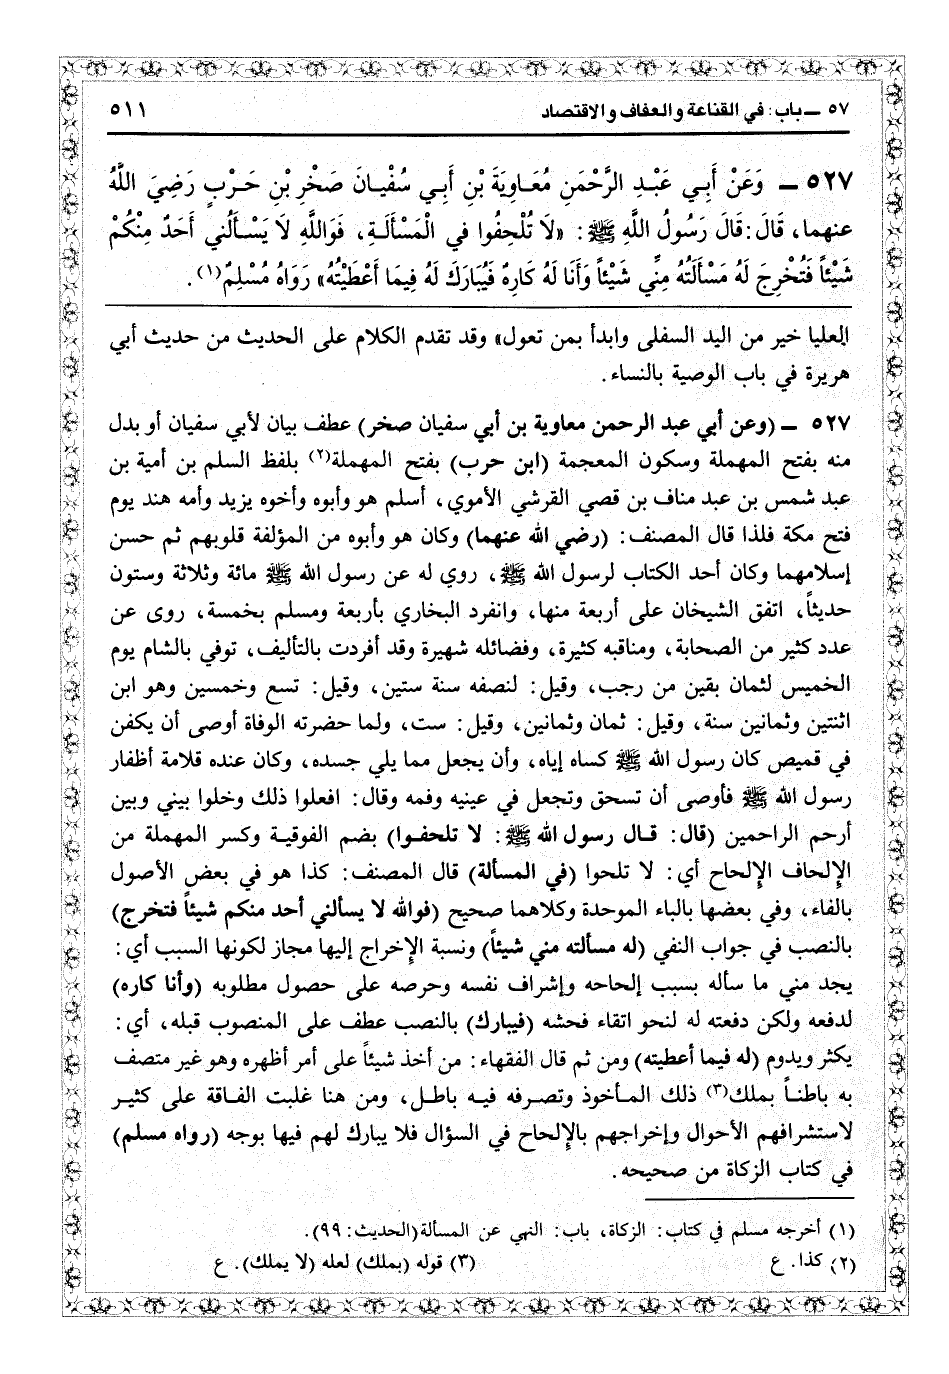 ٥٧ ـ باب: في القناعة والعفاف والاقتصاد ٥١١
٥٢٧ ـ وَعَنْ أَبِي عَبْدِ الرَّحْمَنِ مُعَاوِيَةَ بْنِ أَبِي سُفْيانَ صَخْرِ بْنِ حَرْبٍ رَضِيَ اللَّهُ
عنهما، قَالَ: قَالَ رَسُولُ اللَّهِ ﷺ: «لَا تُلْحِفُوا في الْمَسْأَلَةِ، فَوَاللَّهِ لَا يَسْأَلُني أَحَدٌ مِنْكُمْ
شَيْئاً فَتُخْرِجَ لَهُ مَسْأَلَتُهُ مِنِّي شَيْئاً وَأَنَا لَهُ كَارِهٌ فَيُبَارَكَ لَهُ فِيمَا أَعْطَيْتُهُ» رَوَاهُ مُسْلِمٌ(١).
العليا خير من اليد السفلى وابدأ بمن تعول» وقد تقدم الكلام على الحديث من حديث أبي
هريرة في باب الوصية بالنساء.
٥٢٧ ـ (وعن أبي عبد الرحمن معاوية بن أبي سفيان صخر) عطف بيان لأبي سفيان أو بدل
منه بفتح المهملة وسكون المعجمة (ابن حرب) بفتح المهملة(٢) بلفظ السلم بن أمية بن
عبد شمس بن عبد مناف بن قصي القرشي الأموي، أسلم هو وأبوه وأخوه يزيد وأمه هند يوم
فتح مكة فلذا قال المصنف: (رضي الله عنهما) وكان هو وأبوه من المؤلفة قلوبهم ثم حسن
إسلامهما وكان أحد الكتاب لرسول الله ﷺ، روي له عن رسول الله ﷺ مائة وثلاثة وستون
حديثاً، اتفق الشيخان على أربعة منها، وانفرد البخاري بأربعة ومسلم بخمسة، روى عن
عدد كثير من الصحابة، ومناقبه كثيرة، وفضائله شهيرة وقد أفردت بالتأليف، توفي بالشام يوم
الخميس لثمان بقين من رجب، وقيل: لنصفه سنة ستين، وقيل: تسع وخمسين وهو ابن
اثنتين وثمانين سنة، وقيل: ثمان وثمانين، وقيل: ست، ولما حضرته الوفاة أوصى أن يكفن
في قميص كان رسول الله ﷺ كساه إياه، وأن يجعل مما يلي جسده، وكان عنده قلامة أظفار
رسول الله ﷺ فأوصى أن تسحق وتجعل في عينيه وفمه وقال: افعلوا ذلك وخلوا بيني وبين
أرحم الراحمين (قال: قال رسول الله ﷺ: لا تلحفوا) بضم الفوقية وكسر المهملة من
الإلحاف الإلحاح أي: لا تلحوا (في المسألة) قال المصنف: كذا هو في بعض الأصول
بالفاء، وفي بعضها بالباء الموحدة وكلاهما صحيح (فوالله لا يسألني أحد منكم شيئاً فتخرج)
بالنصب في جواب النفي (له مسألته مني شيئاً) ونسبة الإخراج إليها مجاز لكونها السبب أي:
يجد مني ما سأله بسبب إلحاحه وإشراف نفسه وحرصه على حصول مطلوبه (وأنا كاره)
لدفعه ولكن دفعته له لنحو اتقاء فحشه (فيبارك) بالنصب عطف على المنصوب قبله، أي:
يكثر ويدوم (له فيما أعطيته) ومن ثم قال الفقهاء: من أخذ شيئاً على أمر أظهره وهو غير متصف
به باطناً بملك(٣) ذلك المأخوذ وتصرفه فيه باطل، ومن هنا غلبت الفاقة على كثير
لاستشرافهم الأحوال وإخراجهم بالإلحاح في السؤال فلا يبارك لهم فيها بوجه (رواه مسلم)
في كتاب الزكاة من صحيحه.
(١) أخرجه مسلم في كتاب: الزكاة، باب: النهي عن المسألة (الحديث: ٩٩).
(٢) كذا. ع (٣) قوله (بملك) لعله (لا يملك). ع